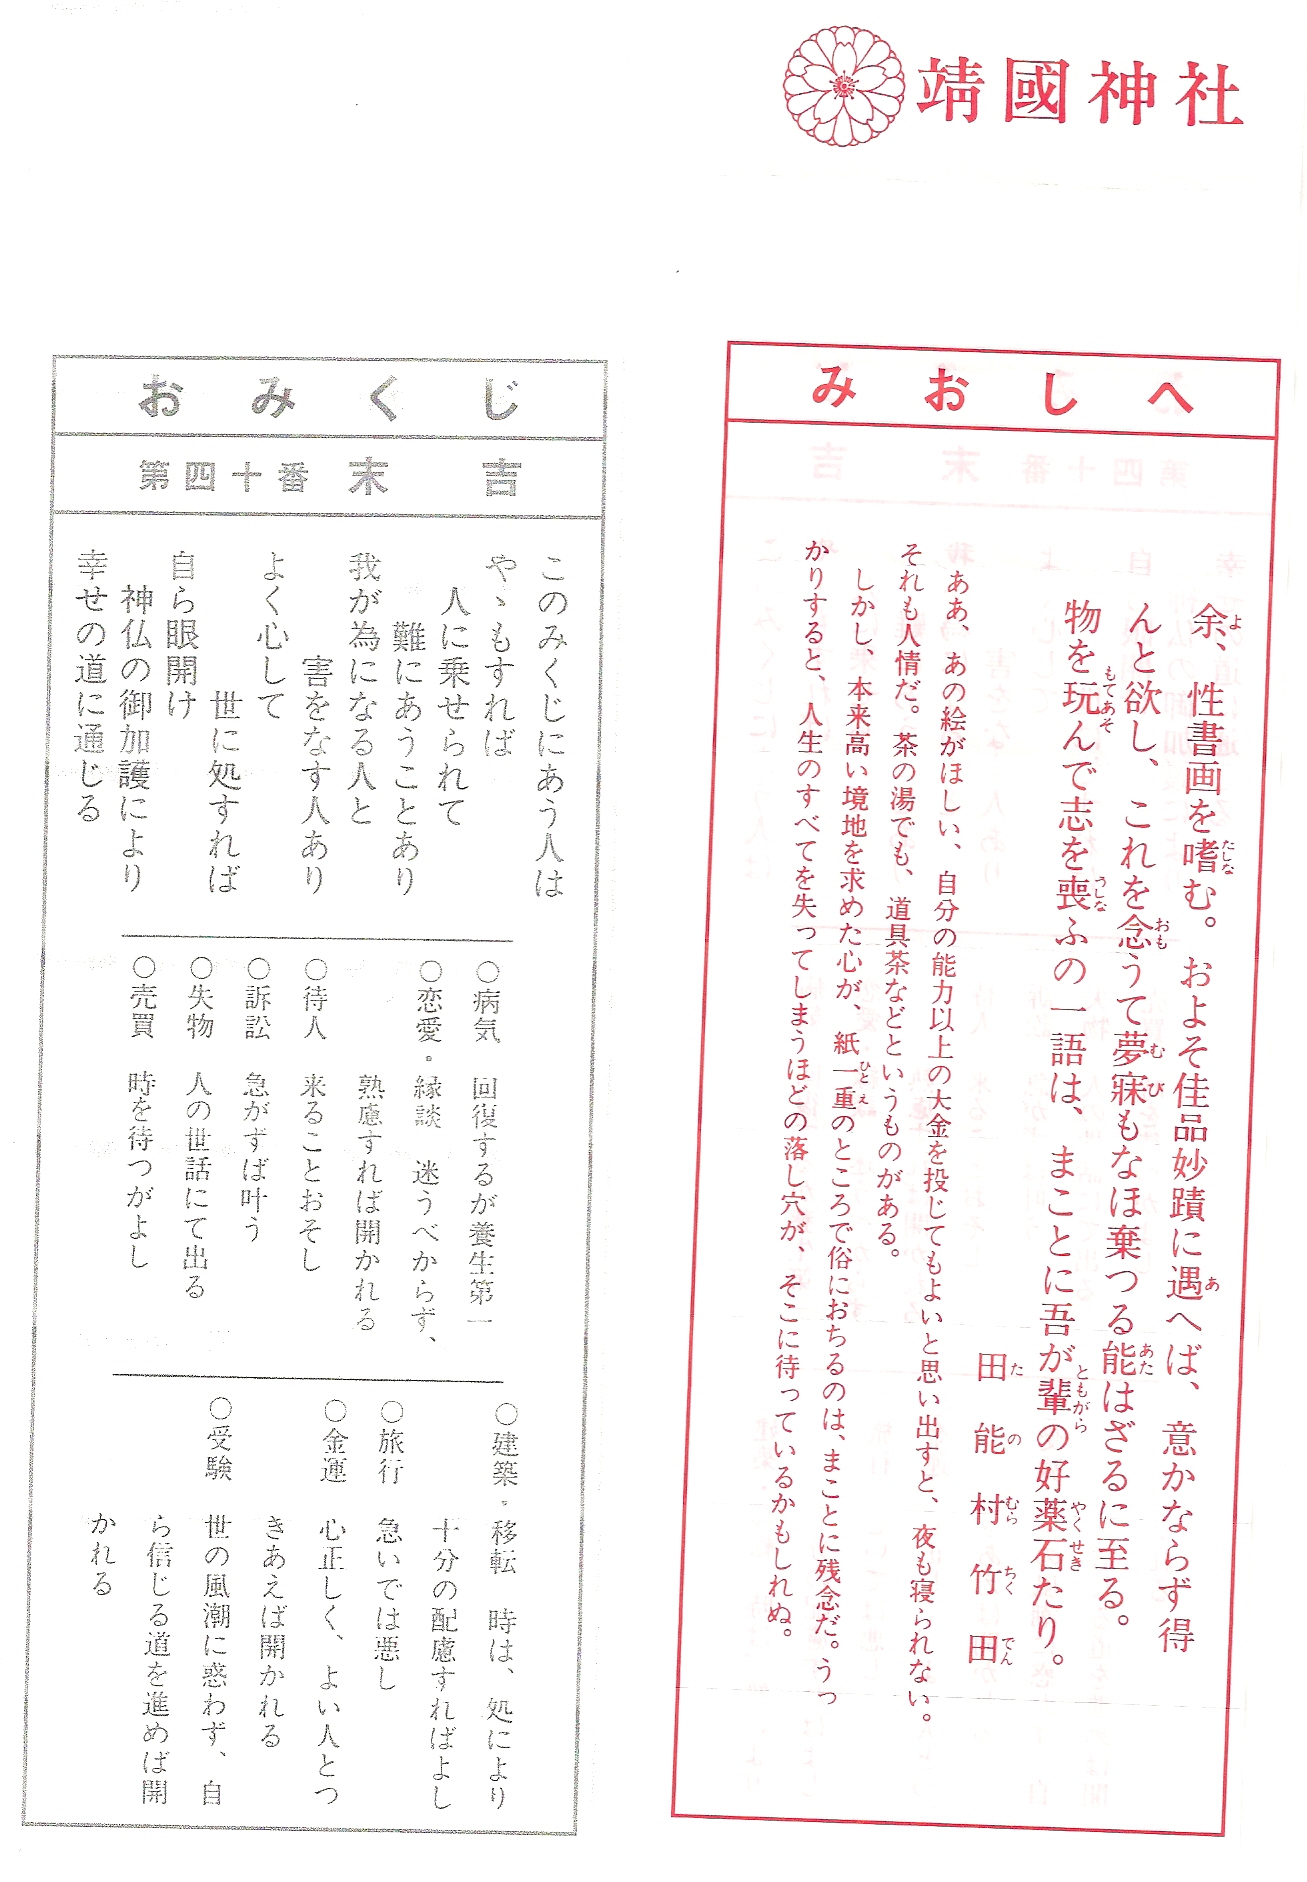 靖國神社
みおしへ
余、性書画を嗜む。およそ佳品妙蹟に遇へば、意かならず得
んと欲し、これを念うて夢寐もなほ棄つる能はざるに至る。
物を玩んで志を喪ふの一語は、まことに吾が輩の好薬石たり。
田能村竹田
ああ、あの絵がほしい、自分の能力以上の大金を投じてもよいと思い出すと、夜も寝られない。
それも人情だ。茶の湯でも、道具茶などというものがある。
しかし、本来高い境地を求めた心が、紙一重のところで俗におちるのは、まことに残念だ。うっ
かりすると、人生のすべてを失ってしまうほどの落し穴が、そこに待っているかもしれぬ。
おみくじ
第四十番 末吉
このみくじにあう人は
やゝもすれば
人に乗せられて
難にあうことあり
我が為になる人と
害をなす人あり
よく心して
世に処すれば
自ら眼開け
神仏の御加護により
幸せの道に通じる
○病気 回復するが養生第一
○恋愛・縁談 迷うべからず、
熟慮すれば開かれる
○待人 来ることおそし
○訴訟 急がずば叶う
○失物 人の世話にて出る
○売買 時を待つがよし
○建築・移転 時は、処により
十分の配慮すればよし
○旅行 急いでは悪し
○金運 心正しく、よい人とつ
きあえば開かれる
○受験 世の風潮に惑わず、自
ら信じる道を進めば開
かれる